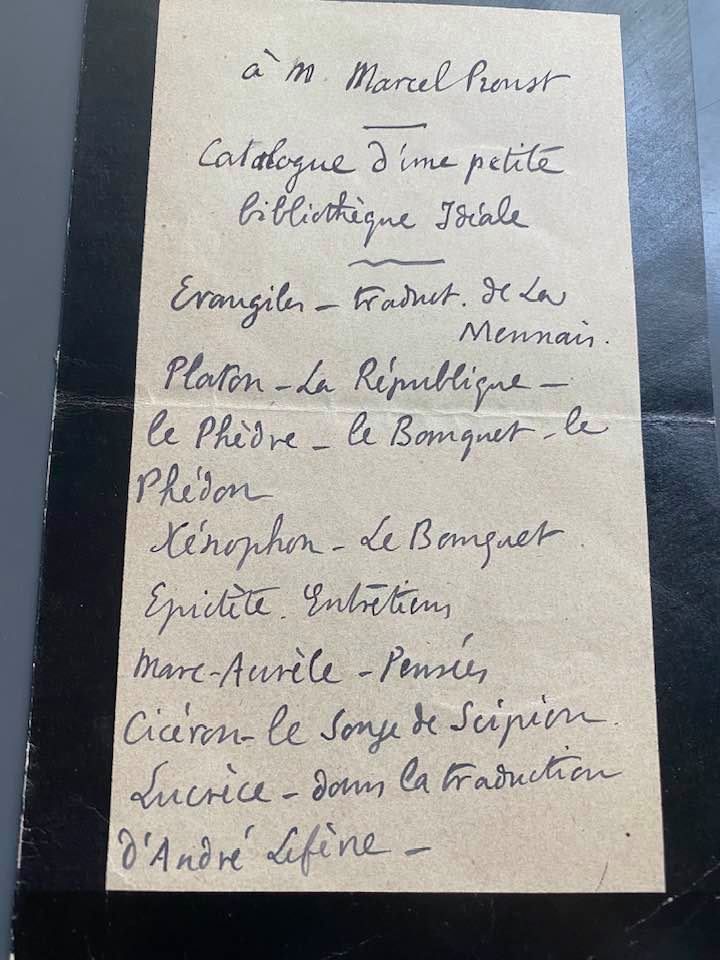 à M. Marcel Proust
Catalogue d'une petite
bibliothèque Idéale
Evangiles – traduct. de La
Mennais.
Platon – La République –
le Phèdre – le Banquet – le
Phédon
Xénophon – Le Banquet.
Epictète. Entrétiens
Marc-Aurèle – Pensées
Cicéron – le Songe de Scipion.
Lucrèce – dans la traduction
d'André Lefèvre –